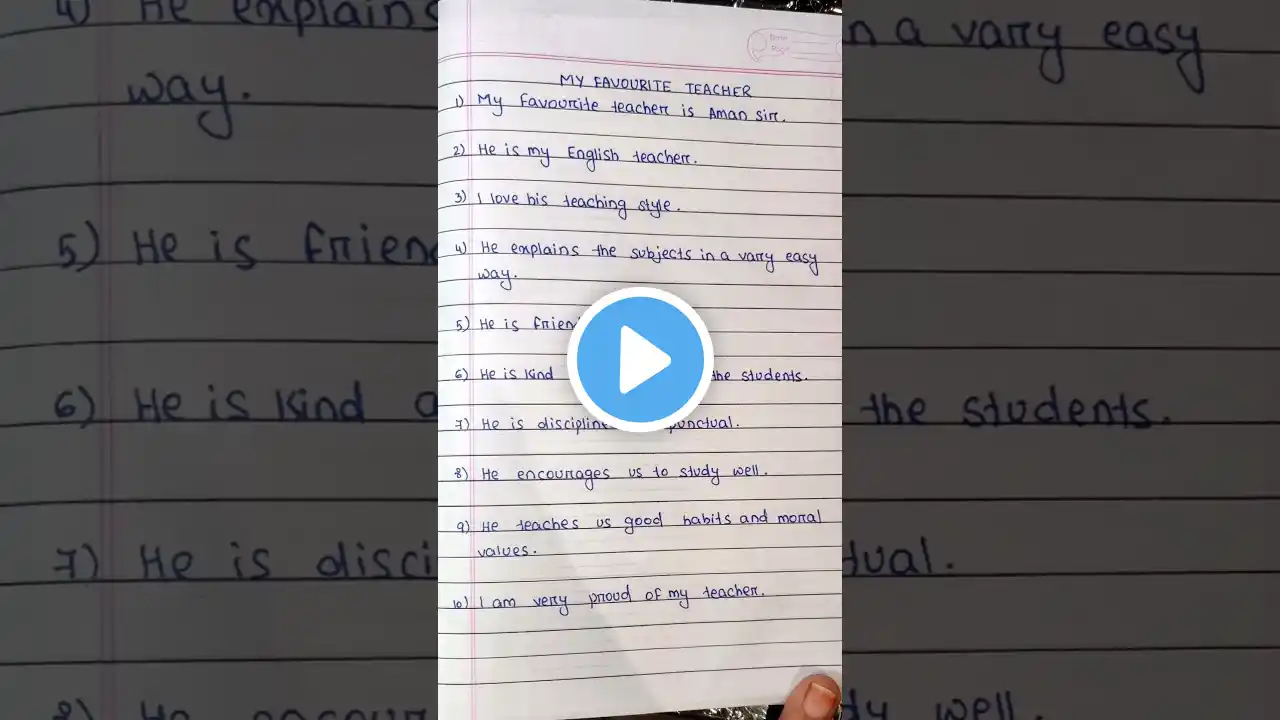 Date
Page
MY FAVOURITE TEACHER
1) My favourite teacher is Aman sir.
2) He is my English teacher.
3) I love his teaching style.
4) He explains the subjects in a vary easy
way.
5) He is
6) He is kind the students.
7) He is punctual.
8) He encourages us to study well.
9) He teaches us good habits and moral
values.
10) I am very proud of my teacher.